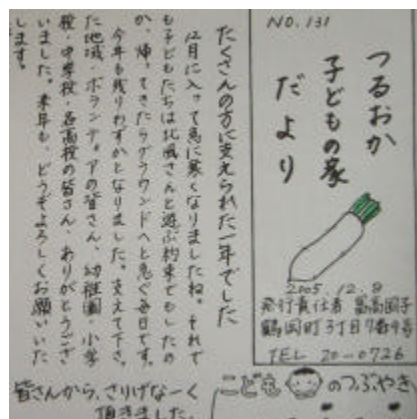 NO. 131
つるおか
子どもの家
だより
2005. 12. 8
発行責任者 冨高国子
鶴岡町3丁目7番9号
TEL 20-0726
たくさんの方に支えられた一年でした
12月に入って急に寒くなりましたね。それで
も子どもたちは北風さんと遊ぶ約束でもしたの
か、帰ってきたらグラウンドへと急ぐ毎日です。
今年も残りわずかとなりました。支えて下さ
た地域・ボランティアの皆さん、幼稚園・小学
校・中学校・各高校の皆さん、ありがとうござ
いました。来年も、どうぞよろしくお願いいた
します。
皆さんから、さりげなーく
頂きました
こども のつぶやき